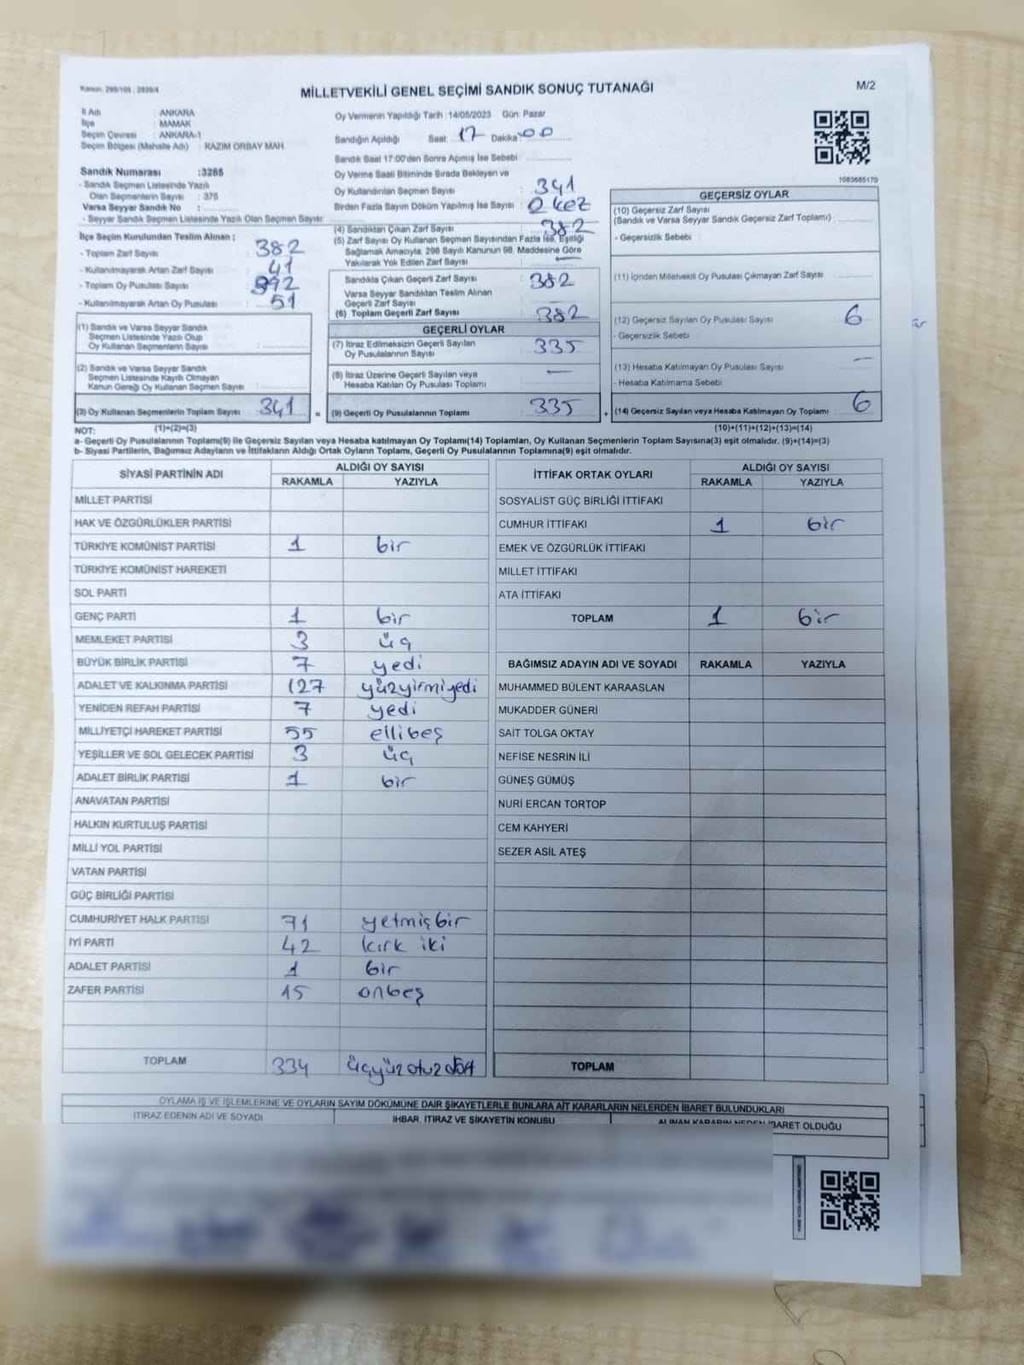 MİLLETVEKİLİ GENEL SEÇİMİ SANDIK SONUÇ TUTANAĞI
M/2
İl Adı : ANKARA
İlçe : MAMAK
Seçim Çevresi : ANKARA-1
Seçim Bölgesi (Mahalle Adı) : KAZIM ORBAY MAH
Oy Vermenin Yapıldığı Tarih :14/05/2023 Gün: Pazar
Sandığın Açıldığı Saat: 17 Dakika: 00
Sandık Saat 17:00'den Sonra Açılmış İse Sebebi
Sandık Numarası :3285
- Sandık Seçmen Listesinde Yazılı
Olan Seçmenlerin Sayısı : 375
Varsa Seyyar Sandık No :
- Seyyar Sandık Seçmen Listesinde Yazılı Olan Seçmen Sayısı:
Oy Verme Saati Bitiminde Sırada Bekleyen ve
Oy Kullandırılan Seçmen Sayısı 341
Birden Fazla Sayım Döküm Yapılmış İse Sayısı : 0 kez
İlçe Seçim Kurulundan Teslim Alınan ;
- Toplam Zarf Sayısı 382
- Kullanılmayarak Artan Zarf Sayısı 41
- Toplam Oy Pusulası 392
- Kullanılmayarak Artan Oy Pusulası 51
(1) Sandık ve Varsa Seyyar Sandık
Seçmen Listesinde Yazılı Olup
Oy Kullanan Seçmenlerin Sayısı :
(2) Sandık ve Varsa Seyyar Sandık
Seçmen Listesinde Kayıtlı Olmayan
Kanun Gereği Oy Kullanan Seçmen Sayısı :
(3) Oy Kullanan Seçmenlerin Toplam Sayısı 341
(4) Sandıktan Çıkan Zarf Sayısı 382
(5) Zarf Sayısı Oy Kullanan Seçmen Sayısından Fazla İse, Eşitliği
Sağlamak Amacıyla, 298 Sayılı Kanunun 98. Maddesine Göre
Yakılarak Yok Edilen Zarf Sayısı —
Sandıkta Çıkan Geçerli Zarf Sayısı 382
Varsa Seyyar Sandıktan Teslim Alınan
Geçerli Zarf Sayısı
(6) Toplam Geçerli Zarf Sayısı 382
GEÇERLİ OYLAR
(7) İtiraz Edilmeksizin Geçerli Sayılan
Oy Pusulalarının Sayısı 335
(8) İtiraz Üzerine Geçerli Sayılan veya
Hesaba Katılan Oy Pusulası Toplamı —
= (9) Geçerli Oy Pusulalarının Toplamı 335
1083685170
GEÇERSİZ OYLAR
(10) Geçersiz Zarf Sayısı
(Sandık ve Varsa Seyyar Sandık Geçersiz Zarf Toplamı)
- Geçersizlik Sebebi
(11) İçinden Milletvekili Oy Pusulası Çıkmayan Zarf Sayısı
(12) Geçersiz Sayılan Oy Pusulası Sayısı 6
- Geçersizlik Sebebi
(13) Hesaba Katılmayan Oy Pusulası Sayısı —
- Hesaba Katılmama Sebebi
+ (14) Geçersiz Sayılan veya Hesaba Katılmayan Oy Toplamı 6
NOT: (1)+(2)=(3) (10)+(11)+(12)+(13)=(14)
a- Geçerli Oy Pusulalarının Toplamı(9) ile Geçersiz Sayılan veya Hesaba katılmayan Oy Toplamı(14) Toplamları, Oy Kullanan Seçmenlerin Toplam Sayısına(3) eşit olmalıdır. (9)+(14)=(3)
b- Siyasi Partilerin, Bağımsız Adayların ve İttifakların Aldığı Ortak Oyların Toplamı, Geçerli Oy Pusulalarının Toplamına(9) eşit olmalıdır.
SİYASİ PARTİNİN ADI ALDIĞI OY SAYISI
RAKAMLA YAZIYLA
MİLLET PARTİSİ
HAK VE ÖZGÜRLÜKLER PARTİSİ
TÜRKİYE KOMÜNİST PARTİSİ 1 bir
TÜRKİYE KOMÜNİST HAREKETİ
SOL PARTİ
GENÇ PARTİ 1 bir
MEMLEKET PARTİSİ 3 üç
BÜYÜK BİRLİK PARTİSİ 7 yedi
ADALET VE KALKINMA PARTİSİ 127 yüzyirmiyedi
YENİDEN REFAH PARTİSİ 7 yedi
MİLLİYETÇİ HAREKET PARTİSİ 55 ellibeş
YEŞİLLER VE SOL GELECEK PARTİSİ 3 üç
ADALET BİRLİK PARTİSİ 1 bir
ANAVATAN PARTİSİ
HALKIN KURTULUŞ PARTİSİ
MİLLİ YOL PARTİSİ
VATAN PARTİSİ
GÜÇ BİRLİĞİ PARTİSİ
CUMHURİYET HALK PARTİSİ 71 yetmişbir
İYİ PARTİ 42 kırk iki
ADALET PARTİSİ 1 bir
ZAFER PARTİSİ 15 onbeş
TOPLAM 334 üçyüzotuzdört
İTTİFAK ORTAK OYLARI ALDIĞI OY SAYISI
RAKAMLA YAZIYLA
SOSYALİST GÜÇ BİRLİĞİ İTTİFAKI
CUMHUR İTTİFAKI 1 bir
EMEK VE ÖZGÜRLÜK İTTİFAKI
MİLLET İTTİFAKI
ATA İTTİFAKI
TOPLAM 1 bir
BAĞIMSIZ ADAYIN ADI VE SOYADI RAKAMLA YAZIYLA
MUHAMMED BÜLENT KARAASLAN
MUKADDER GÜNERİ
SAİT TOLGA OKTAY
NEFİSE NESRİN İLİ
GÜNEŞ GÜMÜŞ
NURİ ERCAN TORTOP
CEM KAHYERİ
SEZER ASİL ATEŞ
TOPLAM
OYLAMA İŞ VE İŞLEMLERİNE VE OYLARIN SAYIM DÖKÜMÜNE DAİR ŞİKAYETLERLE BUNLARA AİT KARARLARIN NELERDEN İBARET BULUNDUKLARI
İTİRAZ EDENİN ADI VE SOYADI İHBAR, İTİRAZ VE ŞİKAYETİN KONUSU ALINAN KARARIN NEDEN İBARET OLDUĞU